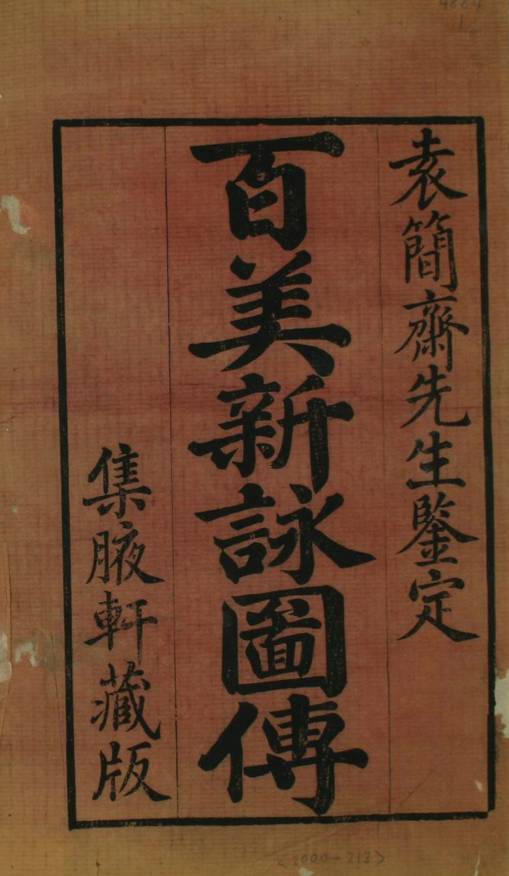 袁簡齋先生鑒定
百美新詠圖傳
集腋軒藏版
<2000-213>